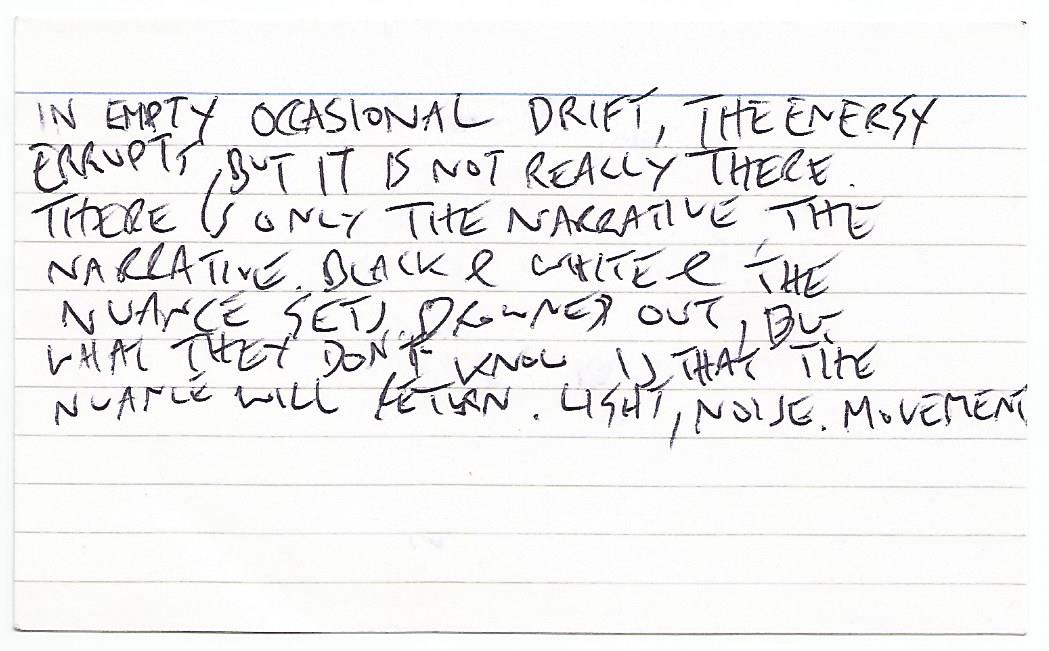 IN EMPTY OCCASIONAL DRIFT, THE ENERGY
ERRUPTS, BUT IT IS NOT REALLY THERE.
THERE IS ONLY THE NARRATIVE, THE
NARRATIVE. BLACK & WHITE & THE
NUANCE GETS DROWNED OUT, BUT
WHAT THEY DON'T KNOW IS THAT THE
NUANCE WILL RETURN. LIGHT, NOISE. MOVEMENT